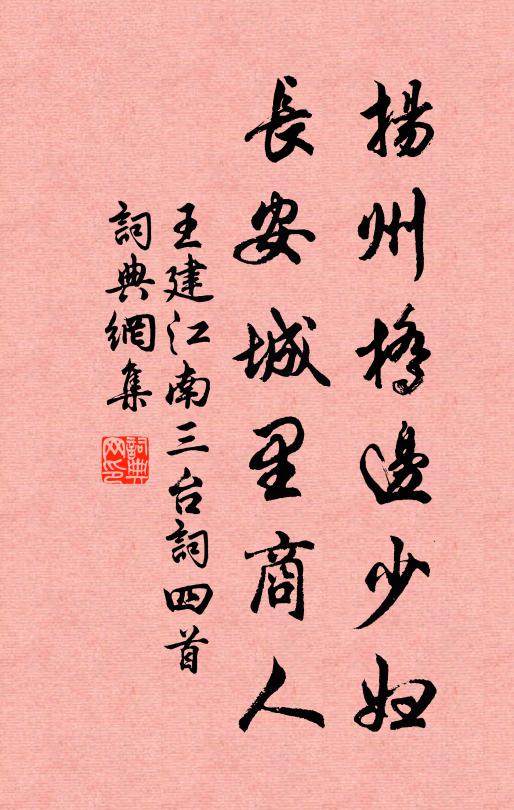 揚州橋邊少婦
長安城里商人
王建江南三台詞四首
詞典網集
詞典
网印